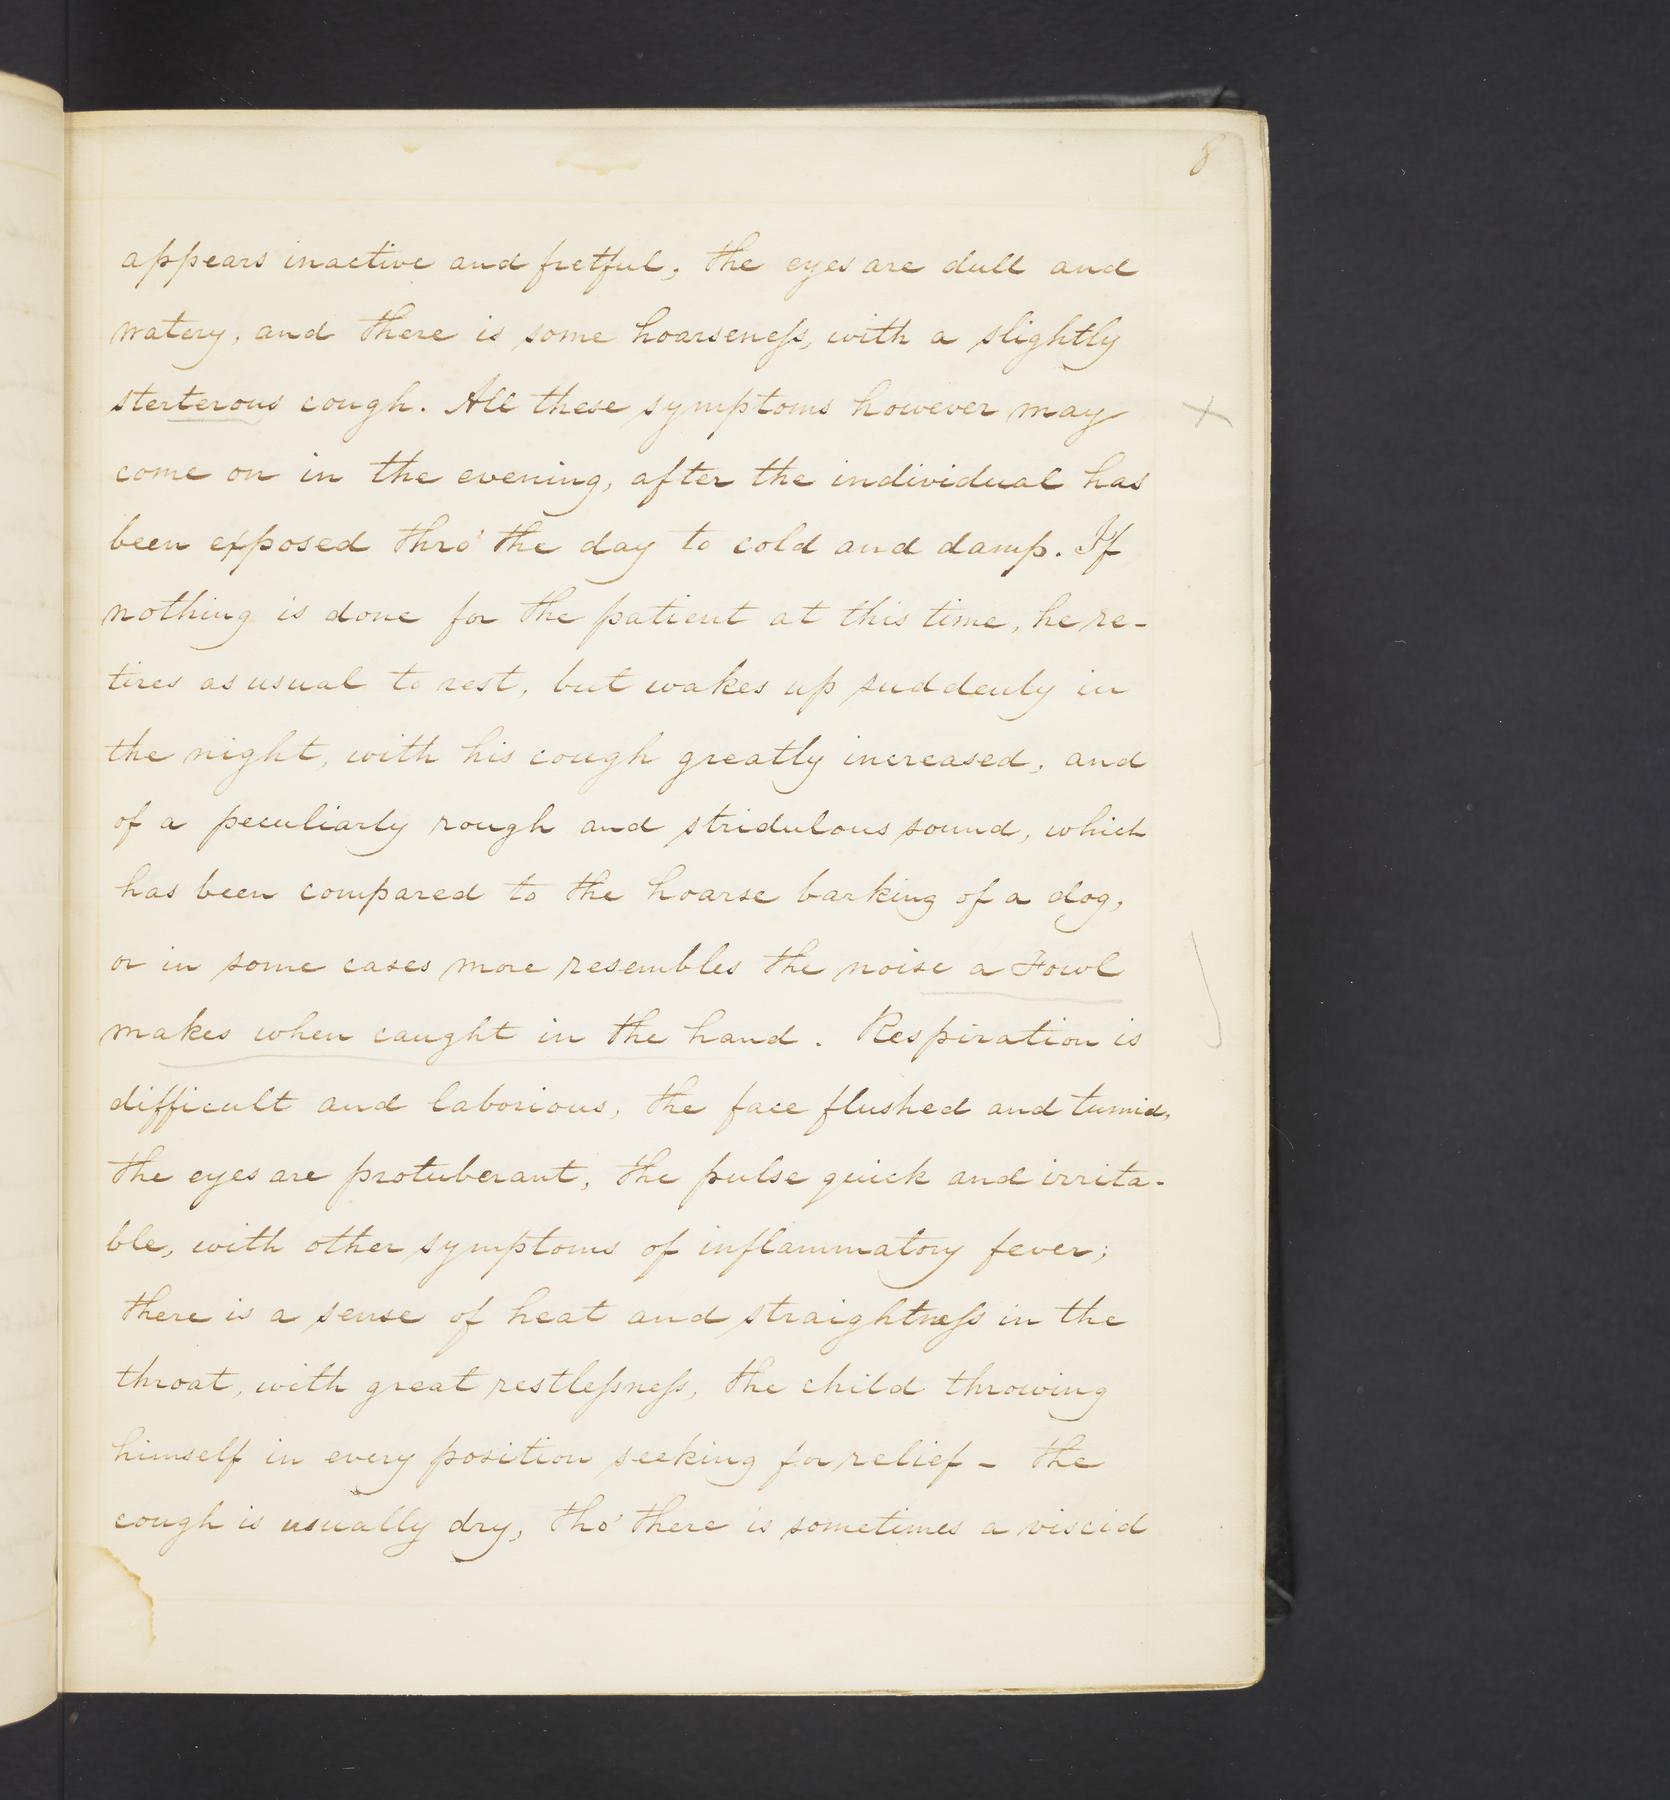 8
appears inactive and fretful, the eyes are dull and
watery, and there is some hoarseneſs, with a slightly
sterterous cough. All these symptoms however may
come on in the evening, after the individual has
been exposed thro' the day to cold and damp. If
nothing is done for the patient at this time, he re-
tires as usual to rest, but wakes up suddenly in
the night, with his cough greatly increased, and
of a peculiarly rough and stridulous sound, which
has been compared to the hoarse barking of a dog,
or in some cases more resembles the noise a Fowl
makes when caught in the hand. Respiration is
difficult and laborious, the face flushed and tumid,
the eyes are protuberant, the pulse quick and irrita-
ble, with other symptoms of inflammatory fever;
there is a sense of heat and straightneſs in the
throat, with great restleſsneſs, the child throwing
himself in every position seeking for relief - the
cough is usually dry, tho' there is sometimes a viscid